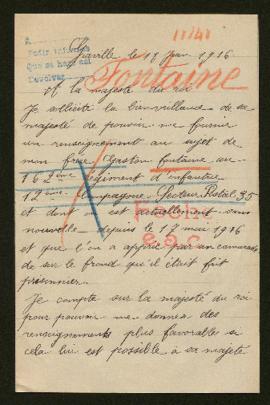 11/41
Pedir informes
Que se han así
Devolver
Joiville le 19 Juin 1916
Fontaine
A la majesté du roi
Je sollicite la bienveillance de sa
majesté de pouvoir me fournir
un renseignement au sujet de
mon frère Gaston fontaine au
162ème régiment d'infanterie
12ème compagnie Secteur Postal 35
et dont est actuellement sans
nouvelle depuis le 17 mai 1916
et que l'on a appris par un camarade
de sur le front qu'il était fait
prisonnier.
Je compte sur la majesté du roi
pour pouvoir me donner des
renseignements plus favorable si
cela lui est possible à sa majesté